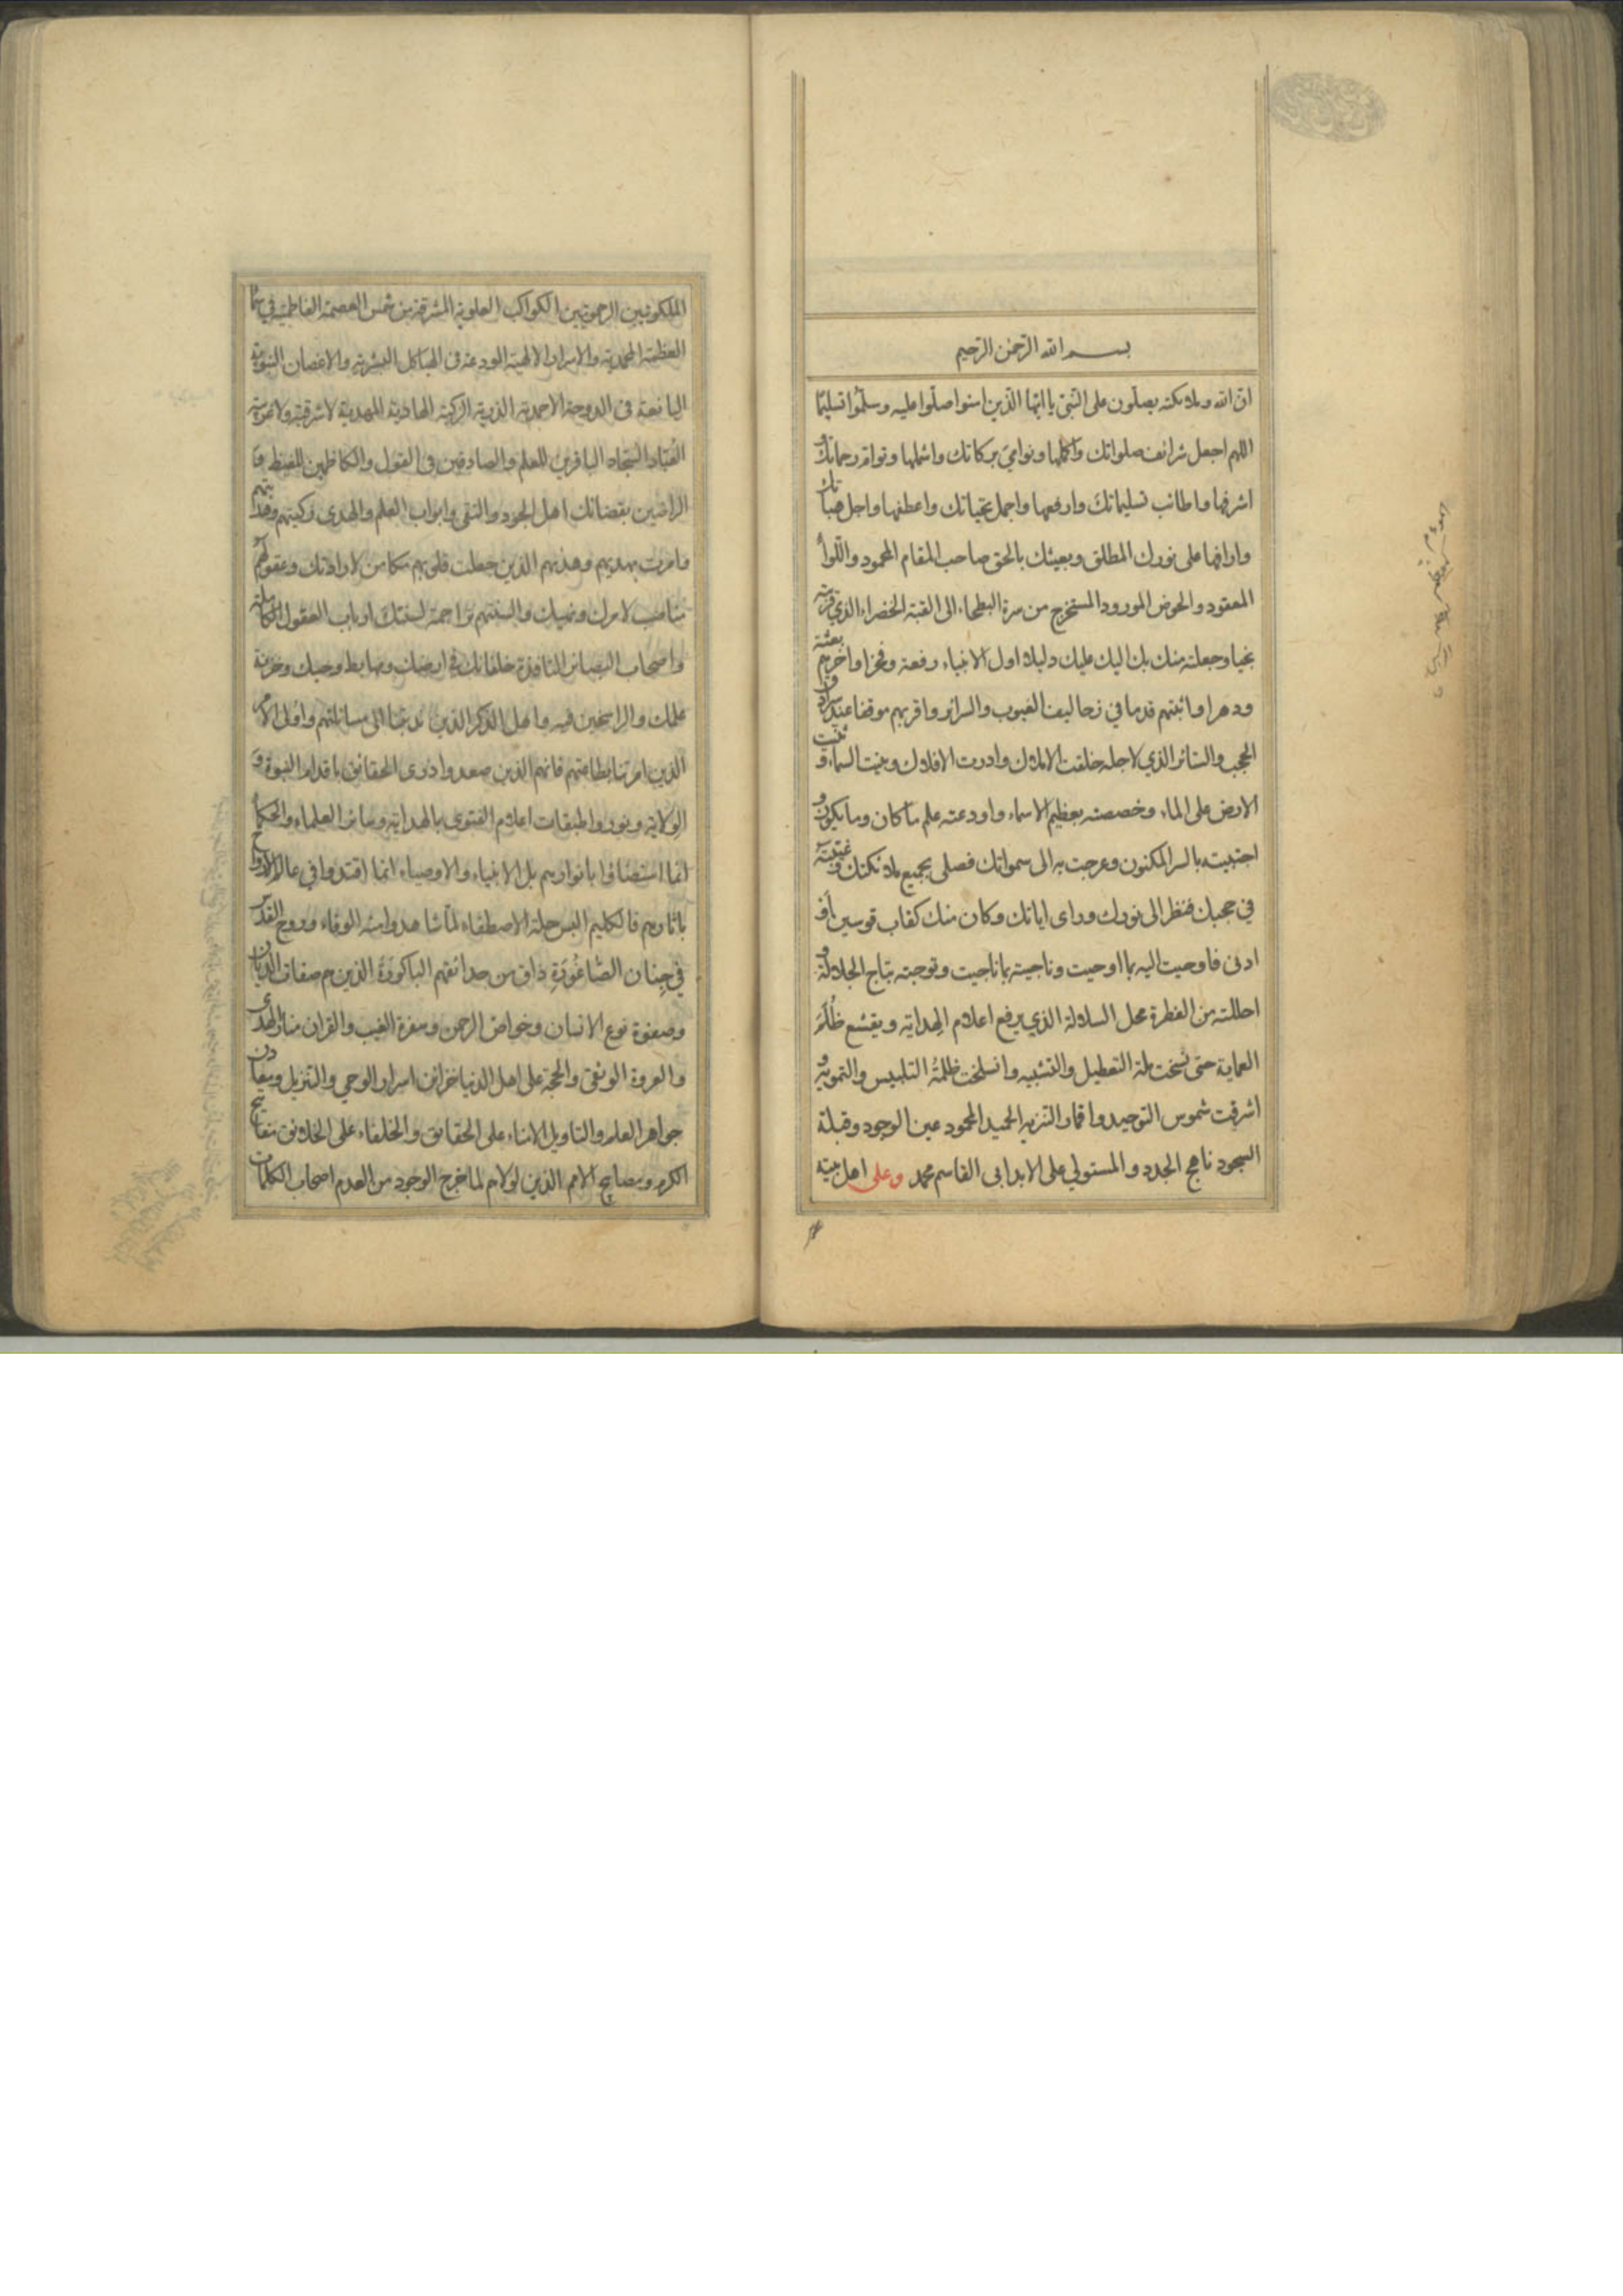 بسم الله الرحمن الرحيم
ان الله وملائكته يصلون على النبي يا ايها الذين امنوا صلوا عليه وسلموا تسليما
اللهم اجعل شرائف صلواتك واكملها ونوامي بركاتك واشملها وتوام رحماتك و
اشرفها واطائب تسليماتك وارفعها واجمل تحياتك واعطفها واجل هباتك
واراfها على نورك المطلق وبعيثك بالحق صاحب المقام المحمود واللواء
المعقود والحوض المورود المستخرج من سرة البطحاء الى القبة الخضراء الذي قربته
نجيا وجعلته منك بك اليك عليك دليلا اول الانبياء رفعة وفخرا واخرهم بعثة
ودهرا واثبتهم قدما في زحاليف الغيوب والسرائر واقربهم موقفا عند سرادق
الحجب والستائر الذي لاجله خلقت الاملاك وادرت الافلاك وبنيت السماء وثبت
الارض على الماء وخصصته بعظيم الاسماء واودعته علم ما كان وما يكون و
اجتبيته بالسر المكنون وعرجت به الى سمواتك فصلى بجميع ملائكتك وغيبته
في حجبك فنظر الى نورك وراى اياتك وكان منك كقاب قوسين او
ادنى فاوحيت اليه بما اوحيت وناجيته بما ناجيت وتوجته بتاج الجلالة و
احللته من الفطرة محل السلالة الذي برفع اعلام الهداية ويقشع ظلم
العماية حتى نسخت ملة التعطيل والتشبيه وانسلخت ظلمة التلبيس والتمويه و
اشرقت شموس التوحيد واقمار التنزيه الحميد المحمود عين الوجود وقبلة
السجود ناهج الجدد والمستولي على الابد ابي القاسم محمد وعلى اهل بيته
الملكوتيين الرحموتيين الكواكب العلوية المشرقة من شمس العصمة الفاطمية في سماء
العظمة المحمدية والاسرار الالهية المودعة في الهياكل البشرية والاغصان النبوية
اليانعة في الدوحة الاحمدية الذرية الزكية الهادية المهدية لا شرقية ولا غربية
العباد السجاد الباقرين للعلم والصادقين في القول والكاظمين للغيظ و
الراضين بقضائك اهل الجود والتقى وابواب العلم والهدى زكيتهم وهديتهم
وامرت بهديهم وهدتهم الذين جعلت قلوبهم مكامن لارادتك وعقولهم
مناصب لامرك ونهيك والسنتهم تراجمة لسنتك ارباب العقول الكاملة
واصحاب البصائر النافذة خلفائك في ارضك ومهابط وحيك وخزنة
علمك والراسخين فيه واهل الذكر الذين ندبتنا الى مسائلتهم واولى الامر
الذين امرتنا بطاعتهم فانهم الذين صعدوا ذرى الحقائق باقدام النبوة و
الولاية ونوروا طبقات اعلام الفتوى بالهداية وسائر العلماء والحكماء
انما استضاؤا بانوارهم بل الانبياء والاوصياء انما اقتدوا في عالم الارواح
باثارهم فالكليم البس حلة الاصطفاء لما شاهدوا منه الوفاء وروح القدس
في جنان الصاغورة ذاق من حدائقهم الباكورة الذين هم صفات الديان
وصفوة نوع الانسان وخواص الرحمن وسفرة الغيب والقران منائر الهدى
والعروة الوثقى والحجة على اهل الدنيا خزائن اسرار الوحي والتنزيل ومعادن
جواهر العلم والتاويل الامناء على الحقائق والخلفاء على الخلائق مفاتيح
الكرم ومصابيح الامم الذين لولاهم لما خرج الوجود من العدم اصحاب الكلمات